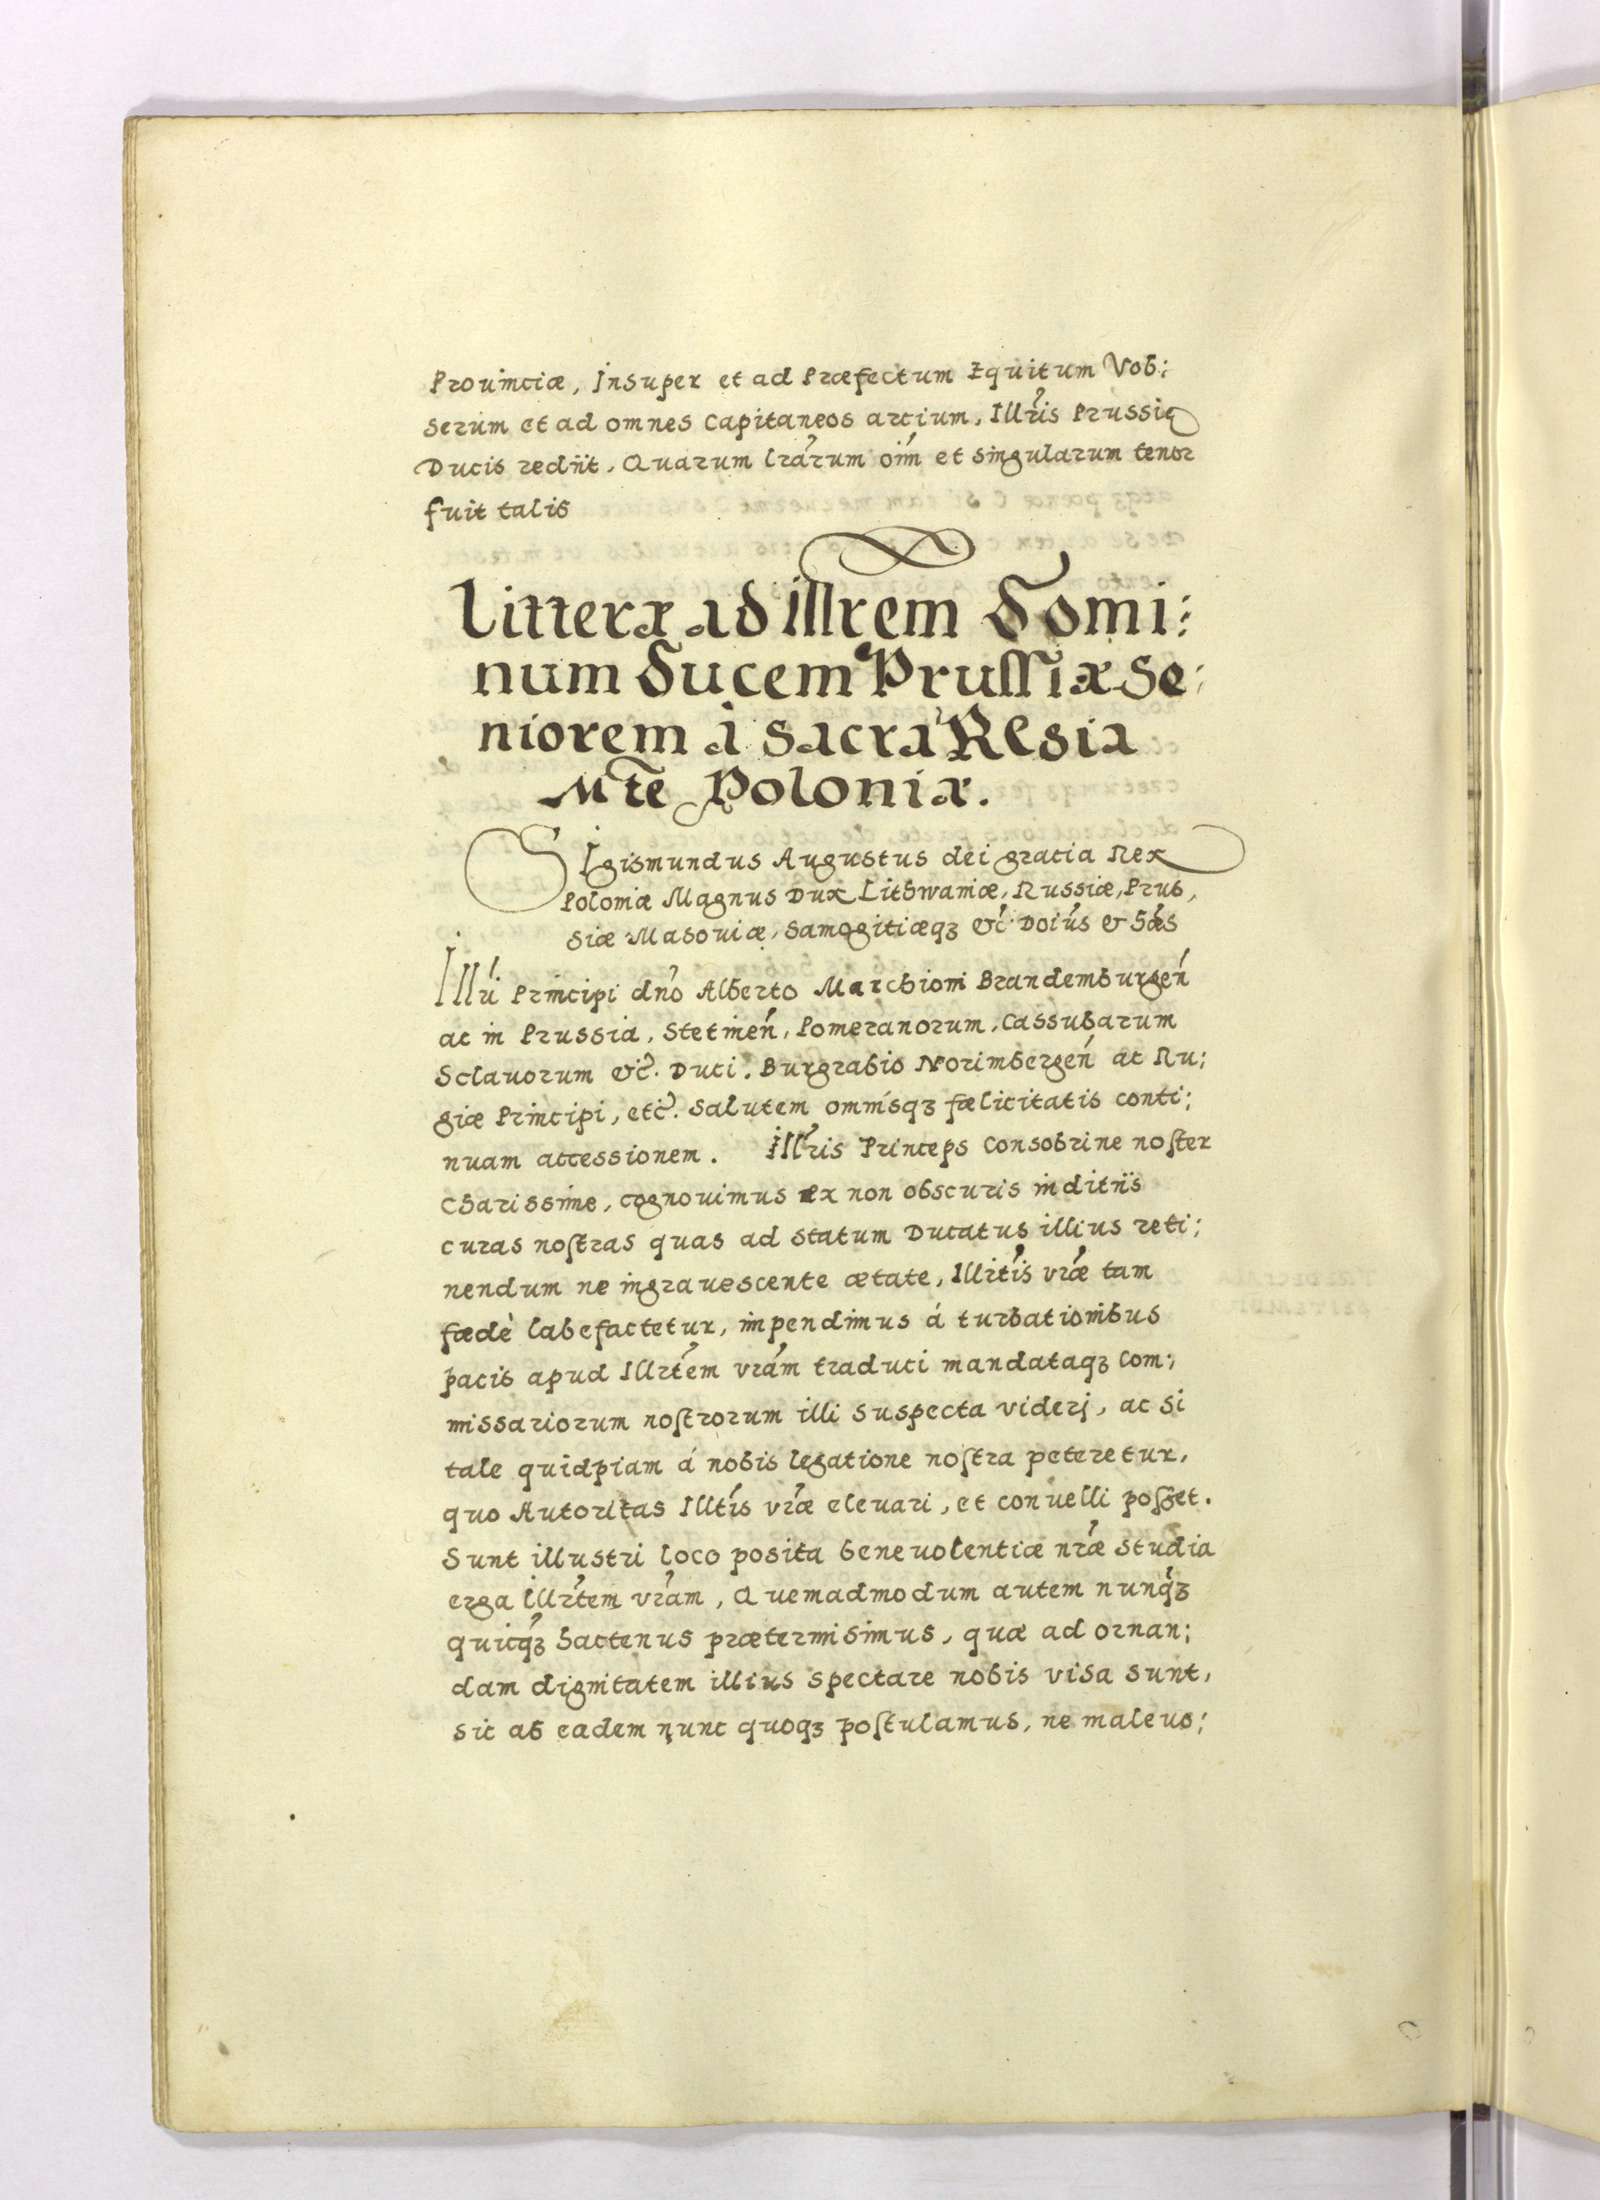 Prouinciæ, Insuper et ad Præfectum Equitum Vob:
serum et ad omnes Capitaneos arcium, Illr̃is Prussię
Ducis rediit, Quarum lrãrum oĩm et singularum tenor
fuit talis
Litteræ ad illrem Domi:
num Ducem Prussiæ Se:
niorem à Sacra Regia
Mte Poloniæ.
SIgismundus Augustus dei gratia Rex
Poloniæ Magnus Dux Lithwaniæ, Russiæ, Prus,
siæ Masouiæ, Samogitiæqꝫ &c̃ Doiũs & Hæ̃s
Illri Principi dnõ Alberto Marchioni Brandemburgeñ
ac in Prussia, Stetineñ, Pomeranorum, Cassubarum
Sclauorum &c̃. Duci. Burgrabio Norimbergeñ ac Ru:
giæ Principi, etc̃. Salutem omnisqꝫ fœlicitatis conti:
nuam accessionem. Illr̃is Princeps Consobrine noster
Charissime, cognouimus ex non obscuris inditiis
curas nostras quas ad statum Ducatus illius reti:
nendum ne ingrauescente ætate, Illrit̃is vræ̃ tam
fœdè labefactetur, impendimus á turbationibus
pacis apud Illrtẽm vrãm traduci mandataqꝫ Com:
missariorum nostrorum illi suspecta viderj, ac si
tale quidpiam á nobis legatione nostra peteretur,
quo Autoritas Illtĩs vræ̃ eleuari, et conuelli posset.
Sunt illustri loco posita beneuolentiæ nræ̃ studia
erga Illrtẽm vrãm, Quemadmodum autem nunq̃ꝫ
quicq̃ꝫ hactenus prætermisimus, quæ ad ornan:
dam dignitatem illius spectare nobis visa sunt,
sic ab eadem nunc quoqꝫ postulamus, ne maleuo: